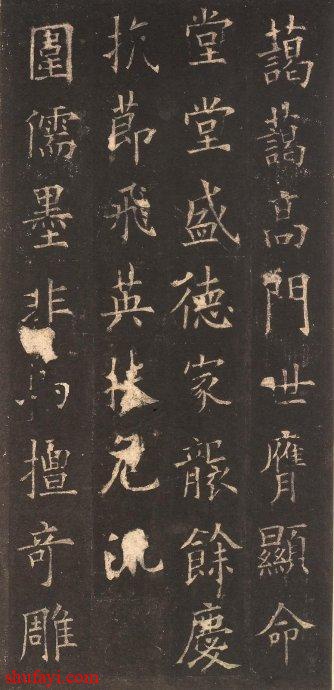 藹藹高門世膺顯命
堂堂盛德家襲餘慶
抗莭飛英扶危
圍儒墨非擅奇雕
shufayi.com